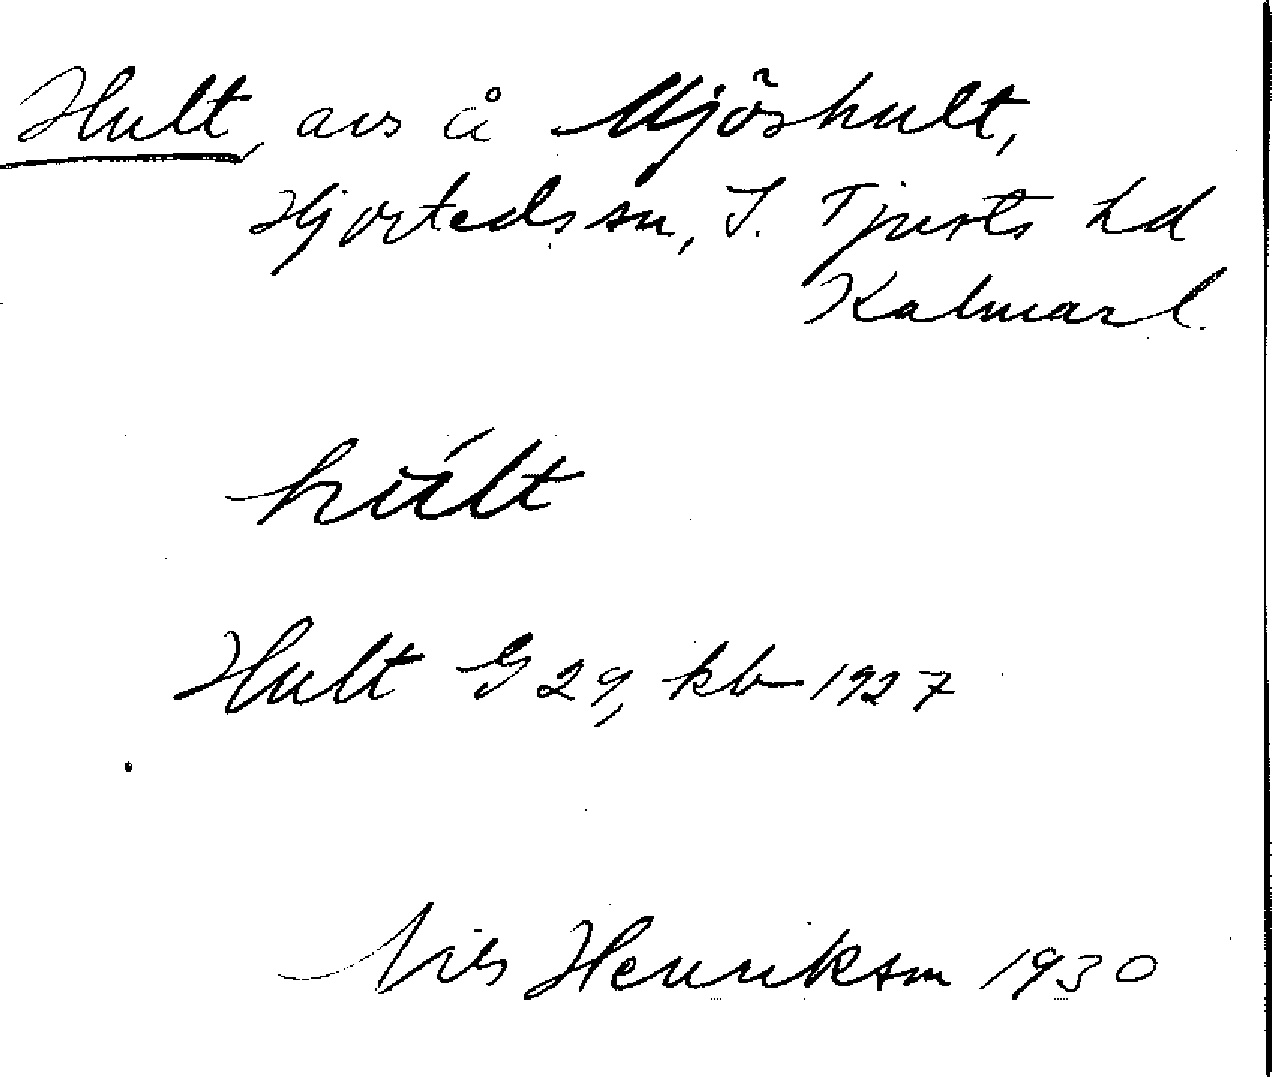 Hult, avs å Mjöshult,
Hjorteds sn, S. Tjusts hd
Kalmar l.
húlt
Hult G 29, kb 1927
Nils Henrikson 1930